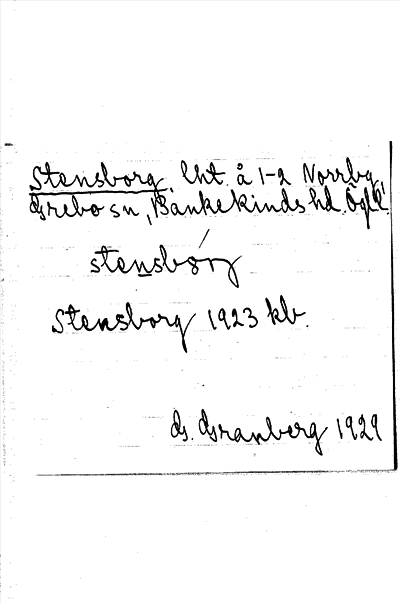 Stensborg, lht. å 1-2 Norrby,
Grebo sn, Bankekinds hd. Ögl.
stensbórj
Stensborg 1923 kb.
G. Granberg 1929